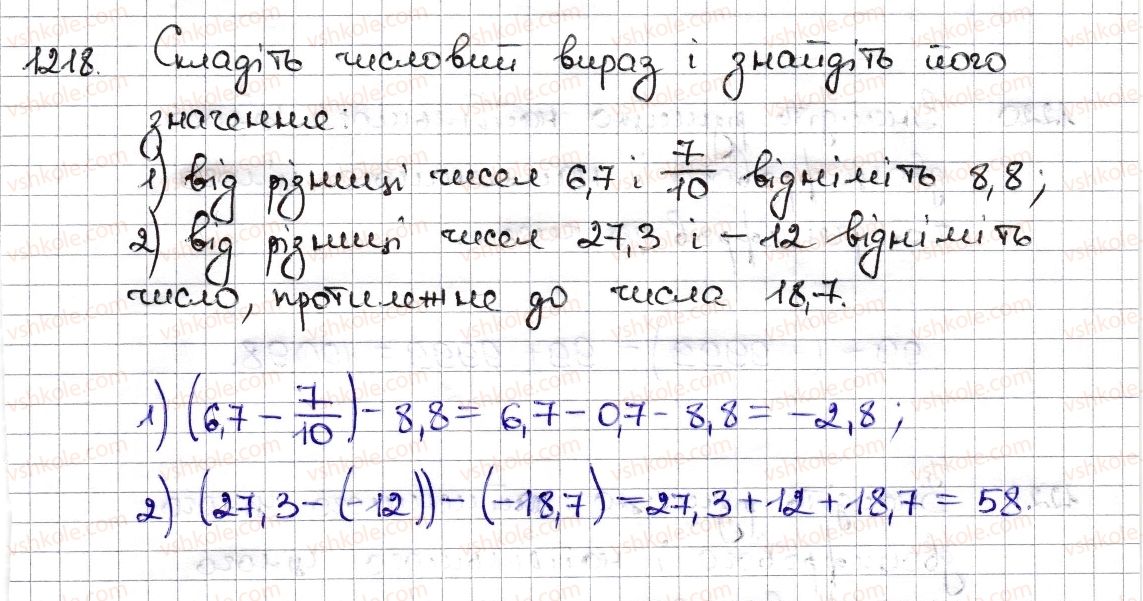 1218. Складіть числовий вираз і знайдіть його
значення:
1) від різниці чисел 6,7 і 7/10 відніміть 8,8;
2) від різниці чисел 27,3 і -12 відніміть
число, протилежне до числа 18,7.
1) (6,7 - 7/10) - 8,8 = 6,7 - 0,7 - 8,8 = -2,8;
2) (27,3 - (-12)) - (-18,7) = 27,3 + 12 + 18,7 = 58.